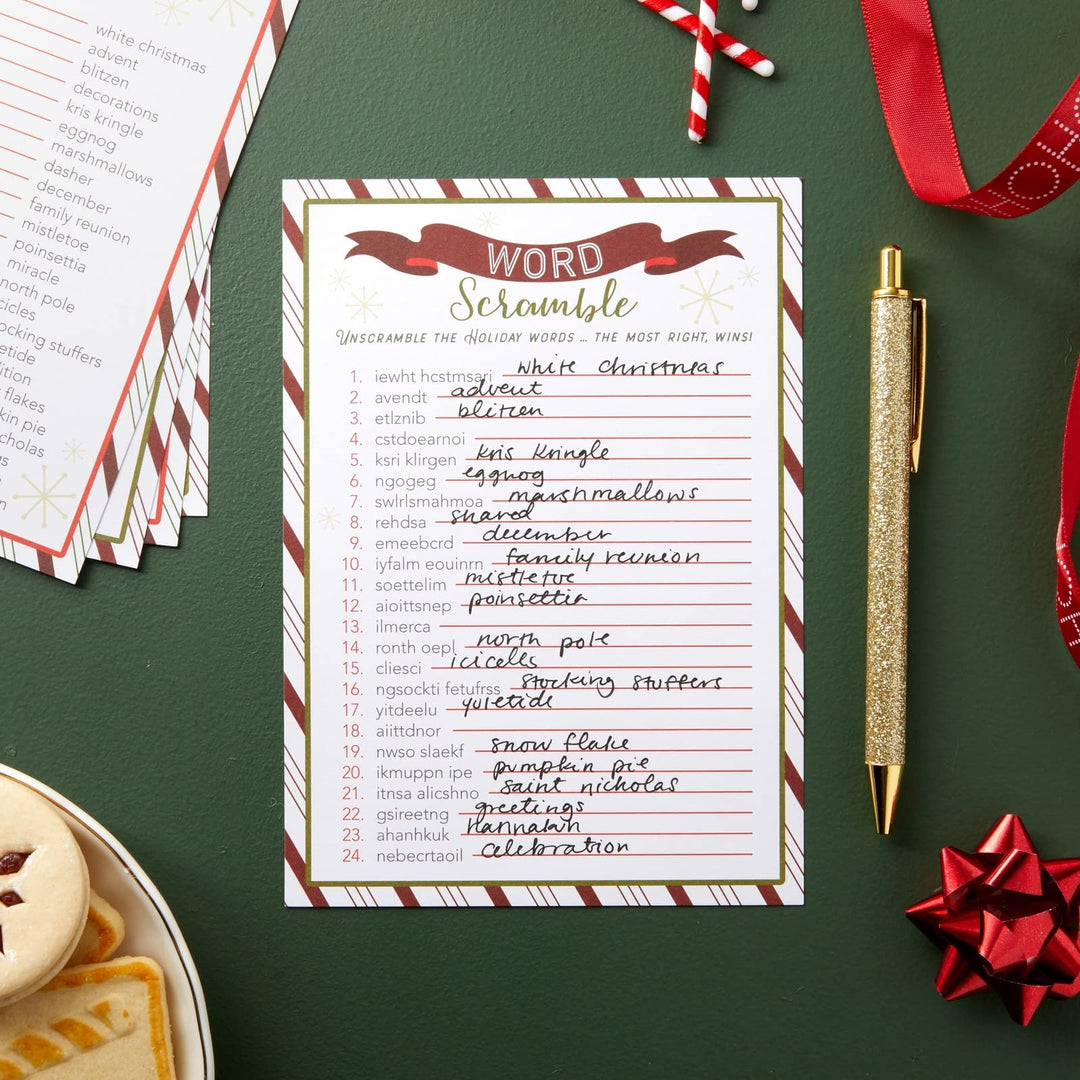 white christmas
advent
blitzen
decorations
kris kringle
eggnog
marshmallows
dasher
december
family reunion
mistletoe
poinsettia
miracle
north pole
icicles
ocking stuffers
etide
ition
flakes
kin pie
cholas
gs
n
WORD
Scramble
UNSCRAMBLE THE HOLIDAY WORDS ... THE MOST RIGHT, WINS!
1. iewht hcstmsari white christmas
2. avendt advent
3. etlznib blitzen
4. cstdoearnoi
5. ksri klirgen kris kringle
6. ngogeg eggnog
7. swlrlsmahmoa marshmallows
8. rehdsa shared
9. emeebcrd december
10. iyfalm eouinrn family reunion
11. soettelim mistletoe
12. aioittsnep poinsettia
13. ilmerca
14. ronth oepl north pole
15. cliesci icicells
16. ngsockti fetufrss stocking stuffers
17. yitdeelu yuletide
18. aiittdnor
19. nwso slaekf snow flake
20. ikmuppn ipe pumpkin pie
21. itnsa alicshno saint nicholas
22. gsireetng greetings
23. ahanhkuk hannakah
24. nebecrtaoil celebration